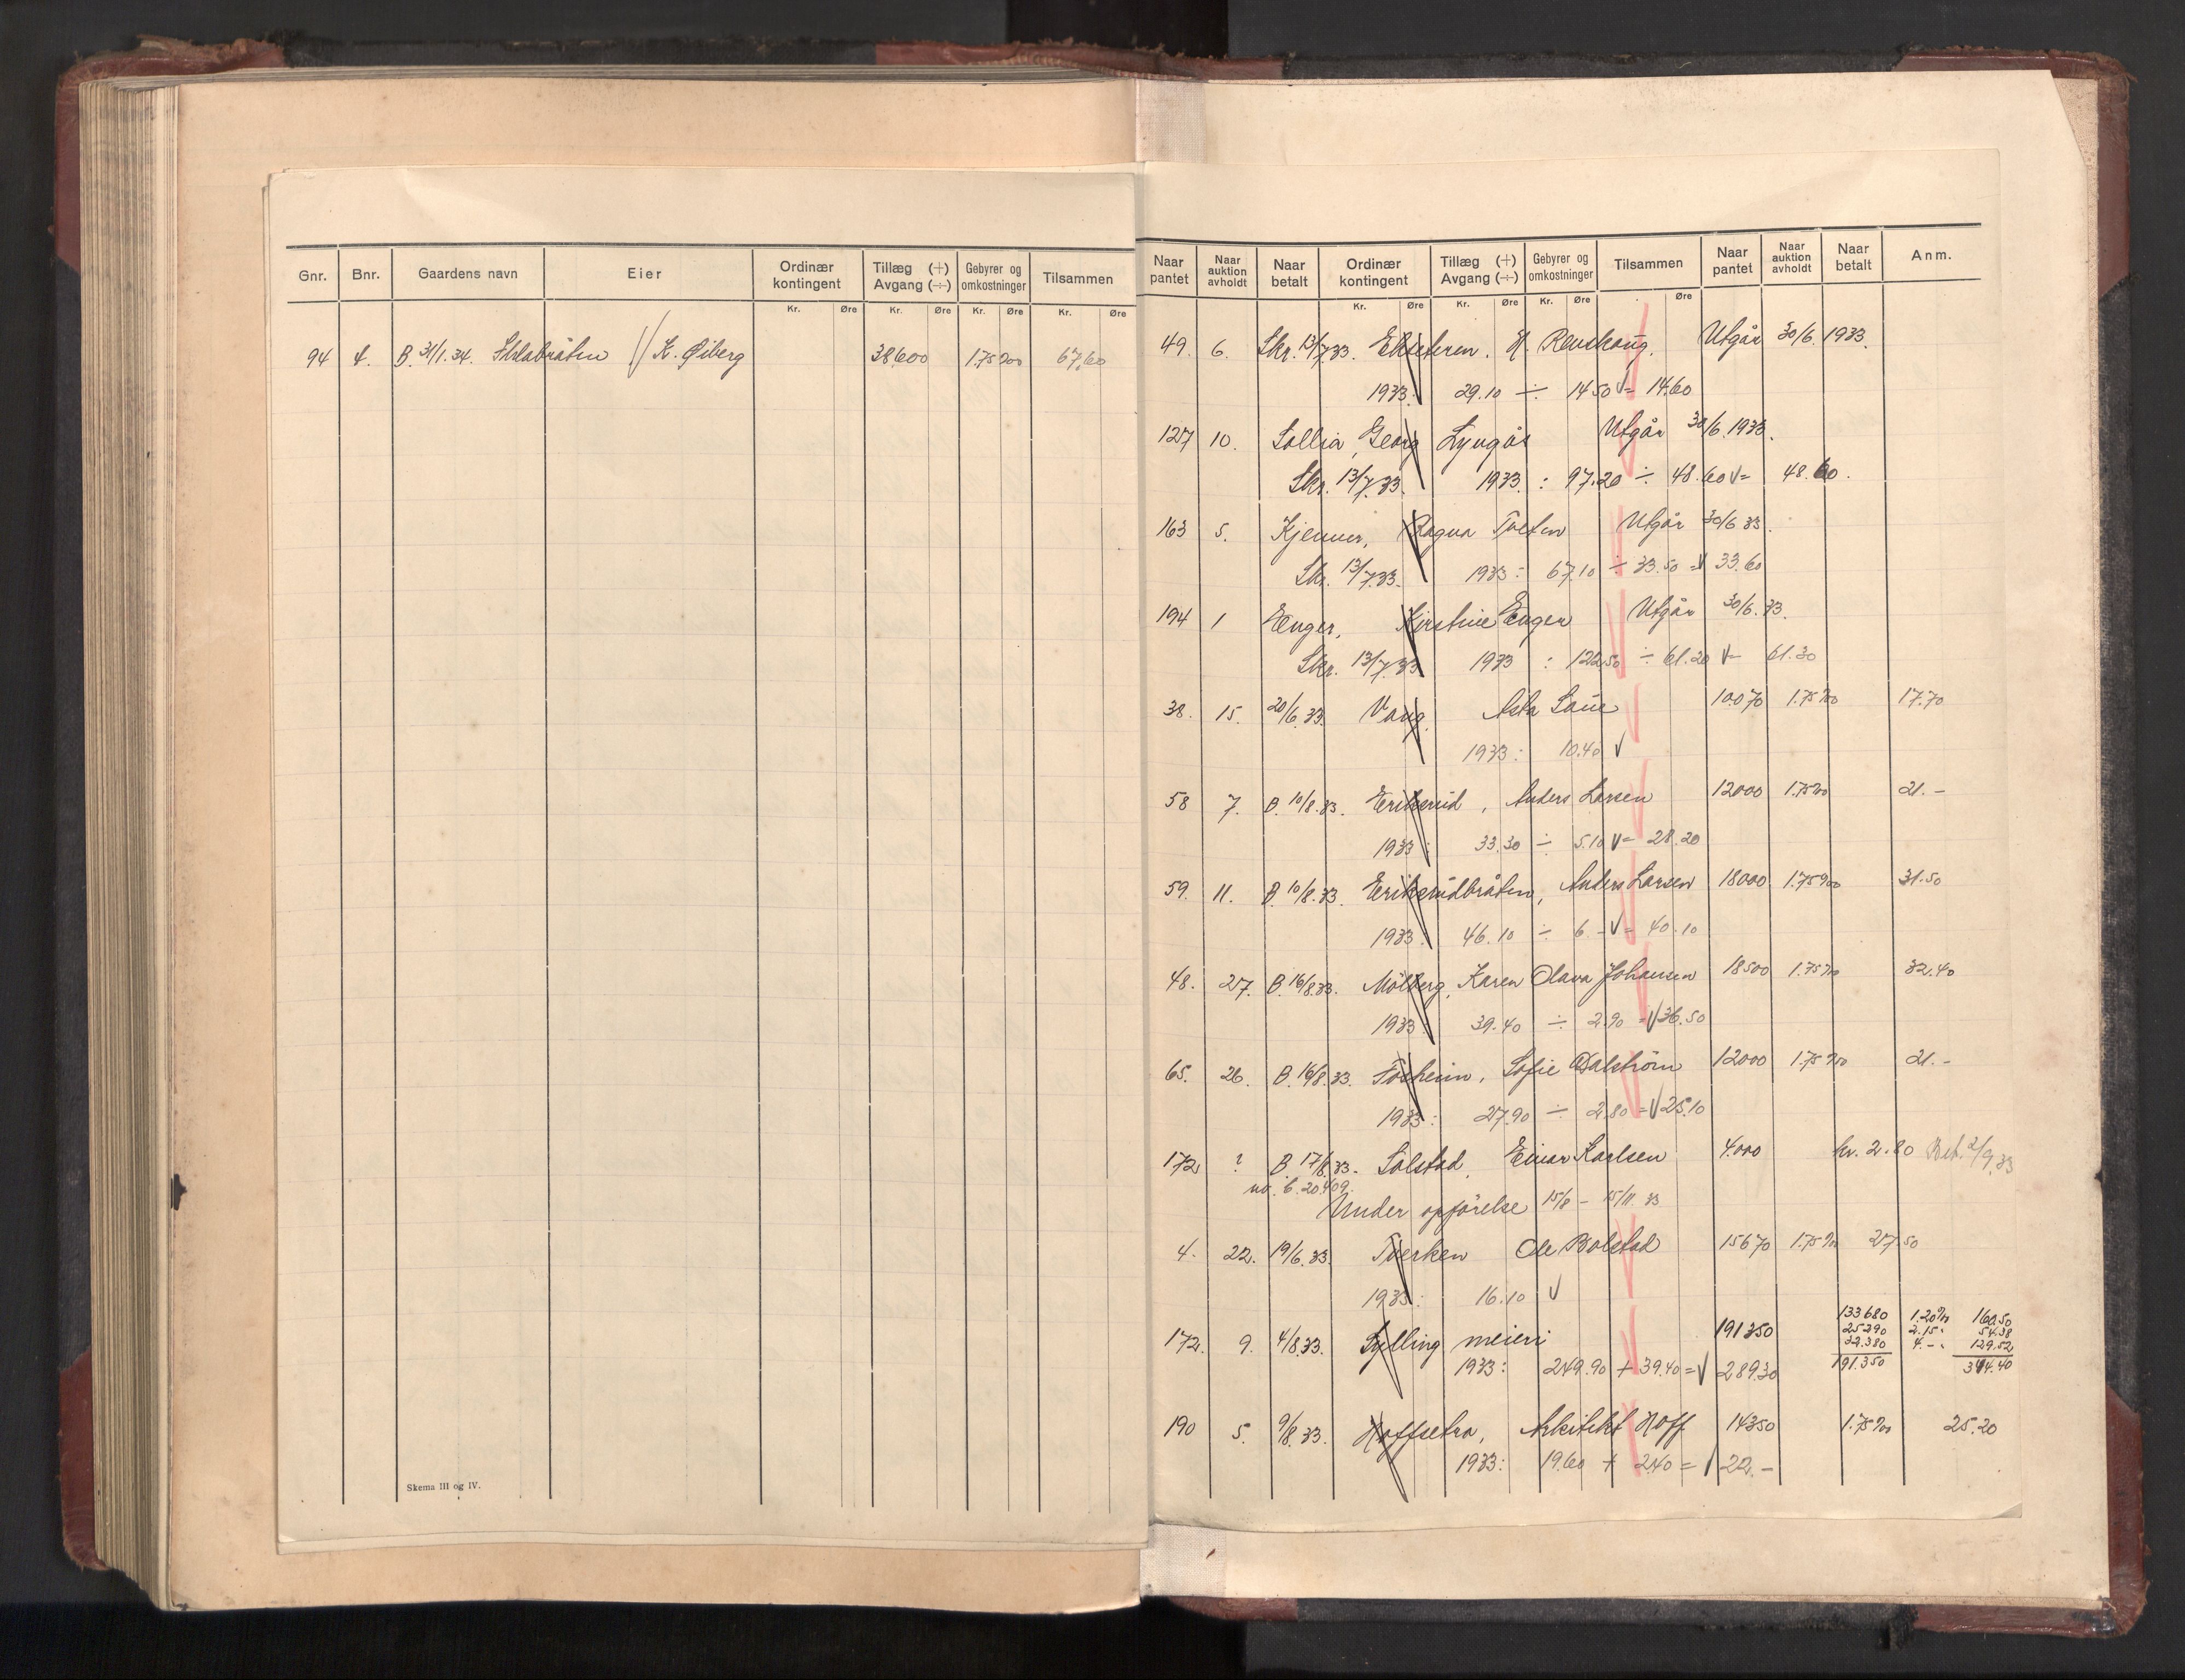 Gnr. Bnr. Gaardens navn Eier Ordinær kontingent Tillæg (+) Avgang (÷) Gebyrer og omkostninger Tilsammen
Kr. Øre Kr. Øre Kr. Øre Kr. Øre
94 4. B. 31/1.34. K. Øiberg 38600 1.75 ‰ 67,60
Skema III og IV.
Naar pantet Naar auktion avholdt Naar betalt Ordinær kontingent Tillæg (+) Avgang (÷) Gebyrer og omkostninger Tilsammen Naar pantet Naar auktion avholdt Naar betalt Anm.
Kr. Øre Kr. Øre Kr. Øre Øre
49. 6. Skr. 13/7.33. Ekseteren. H. Renskoug. Utgår 30/6. 1933.
1933: 29.10 ÷ 14.50 V = 14.60
127 10. Sollia, Georg Lyngås Utgår 30/6. 1933.
Skr. 13/7.33. 1933. : 97.20 ÷ 48.60 V = 48.60.
163 5. Kjenner, Ragna Tveten Utgår 30/6 33.
Skr. 13/7.33. 1933: 67.10 ÷ 33.50 = V 33.60
194 1 Enger, Kirstine Enger Utgår 30/6. 33.
Skr. 13/7.33 1933 : 122.50 ÷ 61.20 V = 61.30
38. 15. 20/6.33. Vang. Asta Laue 10070 1.75 ‰ 17.70
1933: 10.40 V
58 7. B. 10/8.33. Eriksrud, Anders Larsen 12000 1.75 ‰ 21.-
1933: 33.30 ÷ 5.10 V = 28.20
59. 11. B. 10/8.33. Eriksrudbråten, Anders Larsen 18000 1.75 ‰ 31.50
1933: 46.10 ÷ 6.- V = 40.10
48. 27. B. 16/8.33. Mölberg, Karen Olava Johansen 18500 1.75 ‰ 32.40
1933: 39.40 ÷ 2.90 = V 36.50
65. 26. B. 16/8.33. Solheim, Sofie Dalström 12000 1.75 ‰ 21.-
1933: 27.90 ÷ 2.80 = V 25.10
172 ? B 17/8.33. Solstad, Einar Karlsen 4.000 kr. 2.80 Bet. 2/9.33
no. 6.20409.
Under opförelse 15/8 - 15/11. 33
4. 22. 19/6.33. Tverken Ole Bolstad 15670 1.75 ‰ 27.50
1933: 16.10 V
133680 1.20 ‰ 160.50
25290 2.15 " 54.38
172. 9. 4/8.33. Sylling meieri 191350 32.380 4.- " 129.52
1933: 249.90 + 39.40 = V 289.30 191.350 344.40
190 5. 9/8.33. Hoffsetra, Arkitekt Hoff 14350 1.75 ‰ 25.20
1933: 19.60 + 2.40 = V 22.-